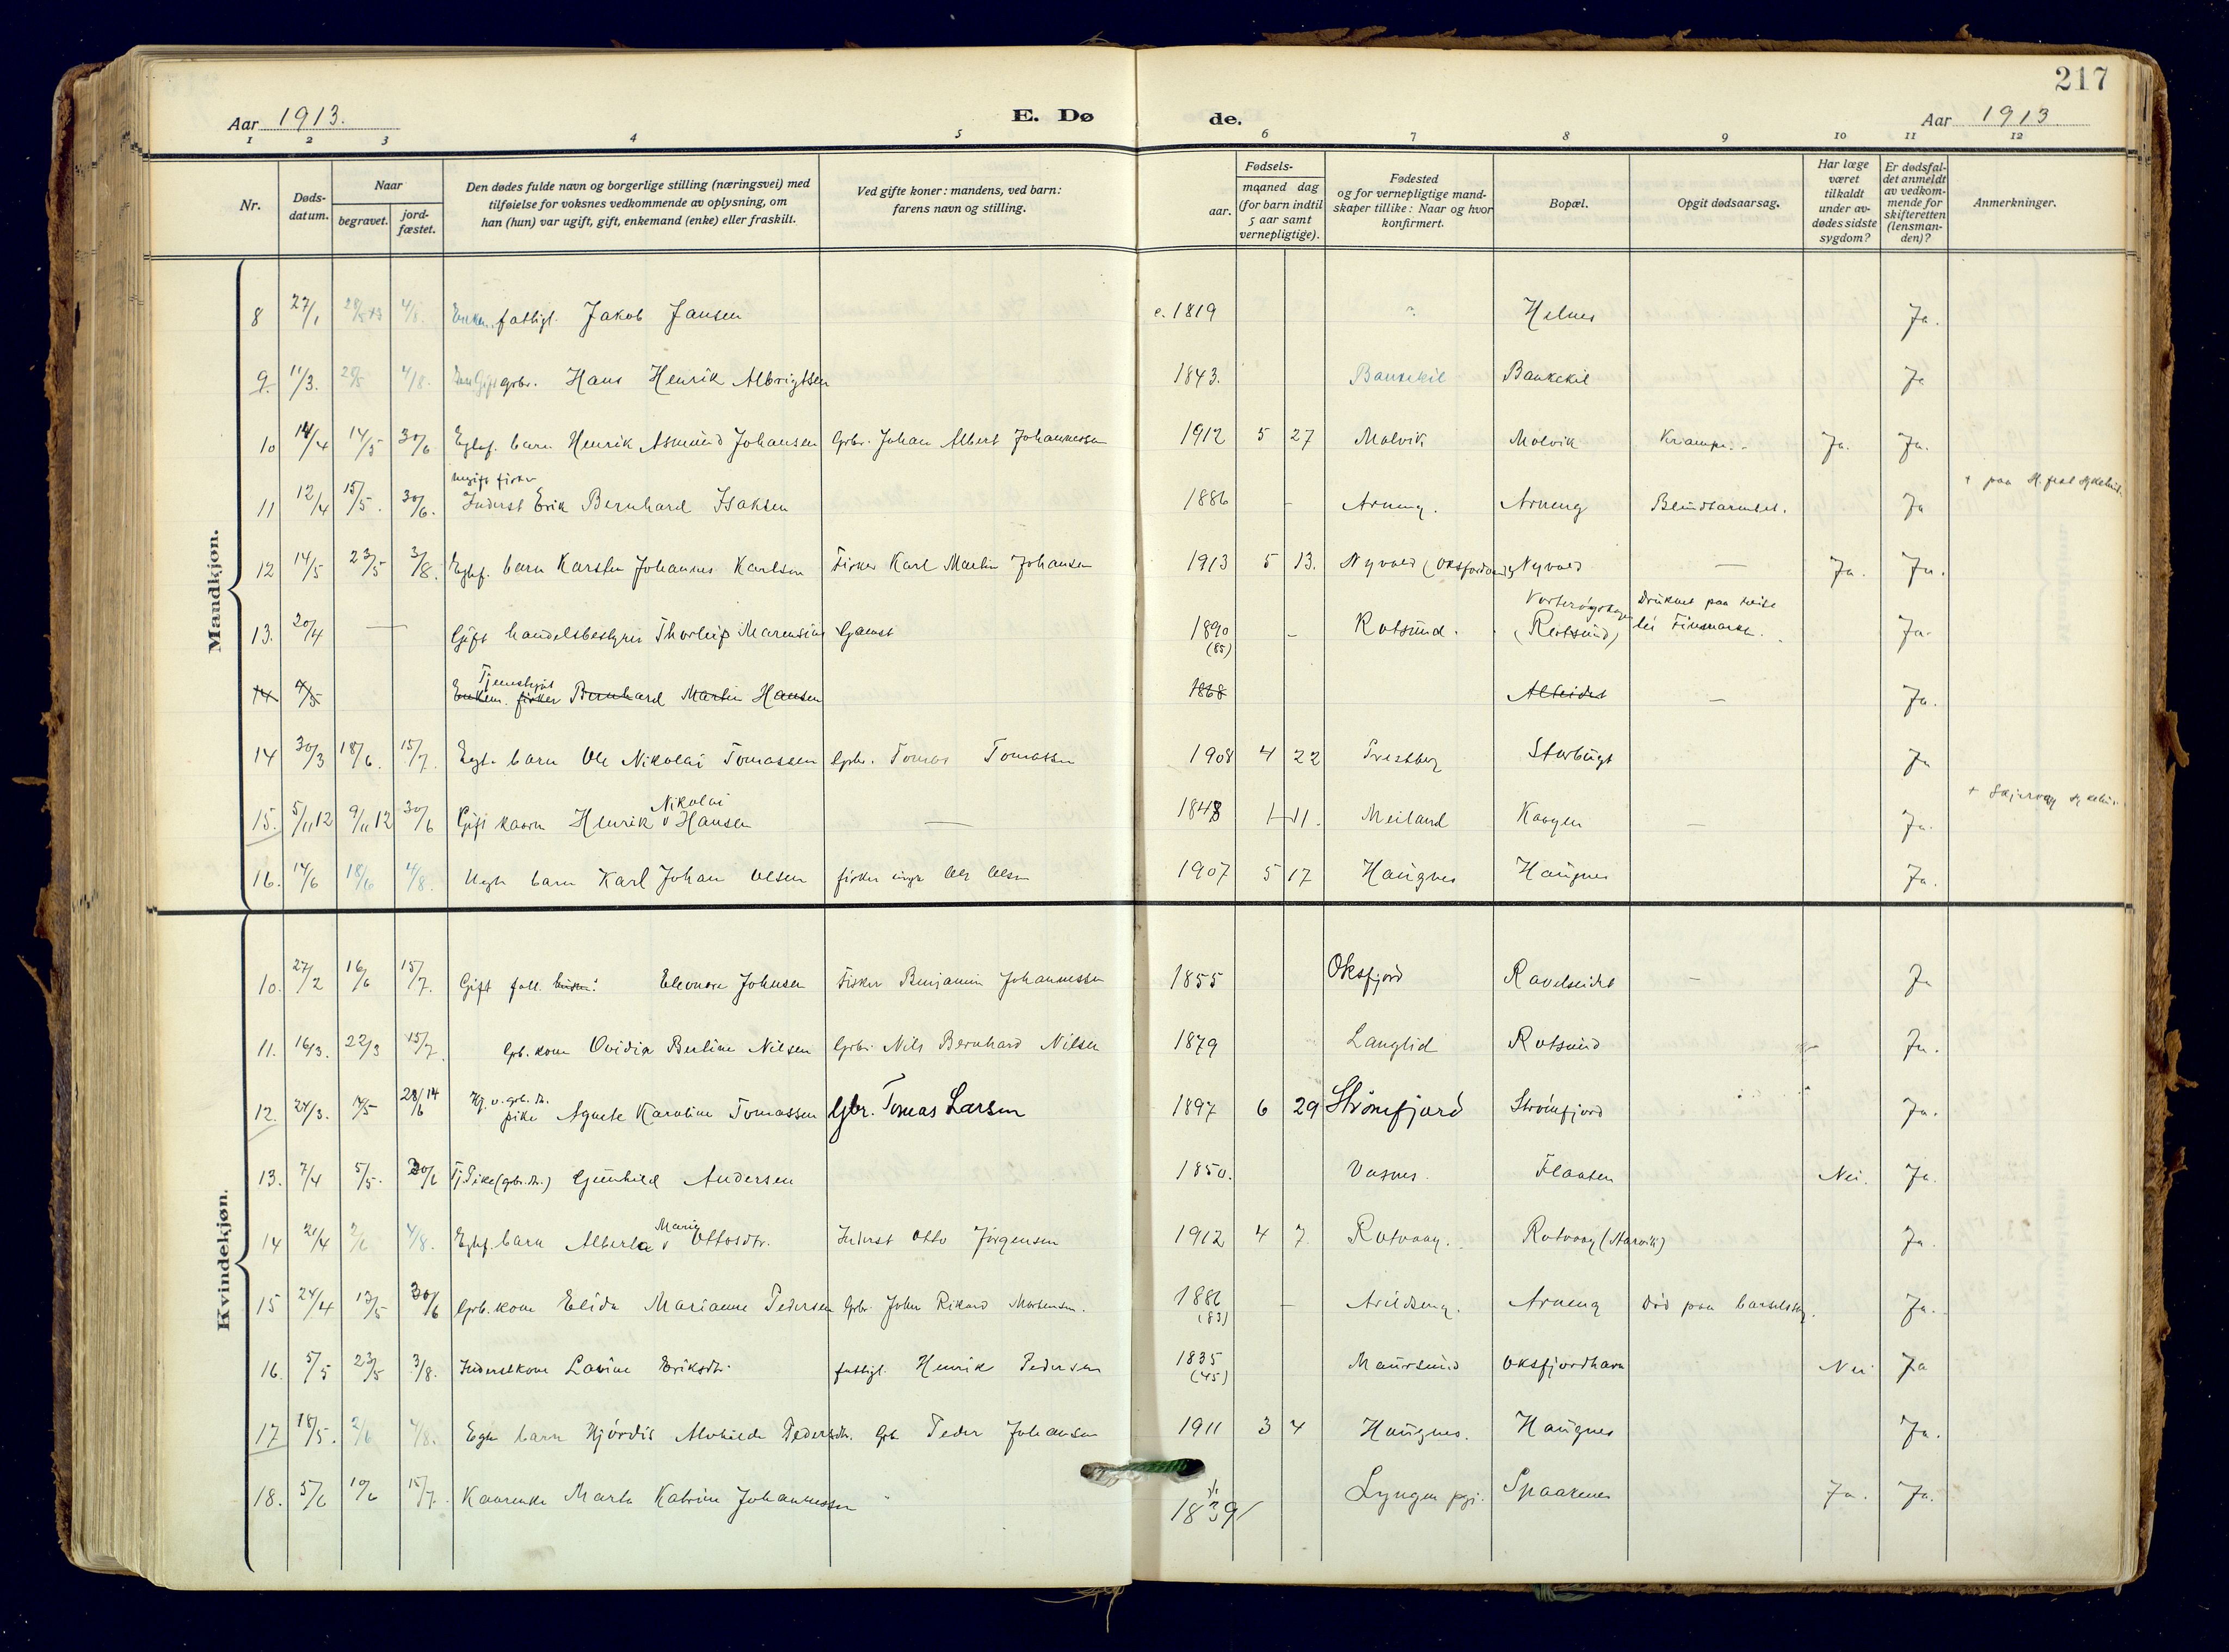 217
Aar 1913.
E. Dø
de.
Aar 1913
1 2 3 4 5 6 7 8 9 10 11 12
Nr.
Døds-
datum.
Naar
begravet.
jord-
fæstet.
Den dødes fulde navn og borgerlige stilling (næringsvei) med
tilføielse for voksnes vedkommende av oplysning, om
han (hun) var ugift, gift, enkemand (enke) eller fraskilt.
Ved gifte koner: mandens, ved barn:
farens navn og stilling.
Fødsels-
aar.
maaned dag
(for barn indtil
5 aar samt
vernepligtige).
Fødested
og for vernepligtige mand-
skaper tillike: Naar og hvor
konfirmert.
Bopæl.
Opgit dødsaarsag.
Har læge
været
tilkaldt
under av-
dødes sidste
sygdom?
Er dødsfal-
det anmeldt
av vedkom-
mende for
skifteretten
(lensman-
den)?
Anmerkninger.
Maandkjøn.
8 27/1 4/8. fattigl. Jakob Jansen c. 1819 ? Helnes Ja.
9. 11/3. 4/8. grbr. Hans Henrik Albrigtsen 1843. Baukekil Baukekil Ja
10 14/4 14/5 30/6 Egtef. barn Henrik Asmund Johansen Grbr. Johan Albert Johannessen 1912 5 27 Molvik Molvik Krampe. Ja. Ja.
ugift fisker
11 12/4 15/5. 30/6. Inderst Erik Bernhard Isaksen 1886 - Arneng. Arneng Blindtarmbet. Ja + paa H.fest Sykehus.
12 14/5 23/5 3/8. Egtef. barn Karsten Johannes Karlsen Fisker Karl Martin Johansen 1913 5 13. Nyvold (Oksfjord) Nyvold — Ja. Ja.
13. 20/4 — Gift handelsbestyrer Thorleif Marensius Gamst 1890 (85) - Rotsund. (Rotsund) Druknet paa reise til Finmarken. Ja.
Tjenestgjt
14 4/5 Enkem. fisker Bernhard Martin Hansen 1868 Alteidet — Ja.
14 30/3 18/6. 15/7. Egt. barn Ole Nikolai Tomassen Grbr. Tomas Tomassen 1908 4 22 Prestberg Storbugt Ja
15. 5/11 12 9/11 12 30/6 Gift kaarm Henrik Nikolai Hansen — 1848 1 11. Meiland Kaagen — Ja. + Skjervøy sykehus.
16. 14/6 18/6 4/8. Uegte barn Karl Johan Olsen fisker ungk Ole Olsen 1907 5 17 Haugnes Haugnes Ja.
Kvindekjøn.
10. 27/2 16/6 15/7. Gift fatt. Eleonora Johnsen Fisker Benjamin Johannessen 1855 Oksfjord Ravelseidet - Ja
11. 16/3. 22/3 15/7. Grb. kone Ovidia Berline Nilsen Grbr. Nils Bernhard Nilsen 1879 Langlid Rotsund Ja.
12. 24/3. 14/5 28/6 14 Hj. v. grb. dt. pike Agnete Karoline Tomassen Gbr. Tomas Larsen 1897 6 29 Strömfjord Strömfjord Ja.
13. 7/4 5/5. 30/6 Tj. Pike (grb. dt.) Gunhild Andersen 1850. Vasnes. Flaaten Nei. Ja.
14 21/4 2/6 4/8. Egtef. barn Alberta Marie Ottosdtr. Inderst Otto Jörgensen 1912 4 7 Rotvaag. Rotvaag (Havnvik) Ja.
15 24/4 13/5 30/6 Grb. kone Elida Marianne Pedersen Grbr. John Rikard Mortensen. 1886 (83) — Arildseng. Arneng Död paa barselseng. Ja.
16. 5/5 23/5 3/8. Inderstkone Lavine Eriksdtr. fattigl. Henrik Pedersen 1835 (45) Maursund Oksfjordhavn Nei Ja
17 18/5. 2/6 4/8. Egte barn Hjördis Alvhilde Pedersdtr. Grb Peder Johansen 1911 3 4 Haugnes. Haugnes Ja.
18. 5/6 10/6 15/7. Kaarenke Marta Katrine Johannessen 1839 Lyngen pgj. Spaakenes Ja. Ja.